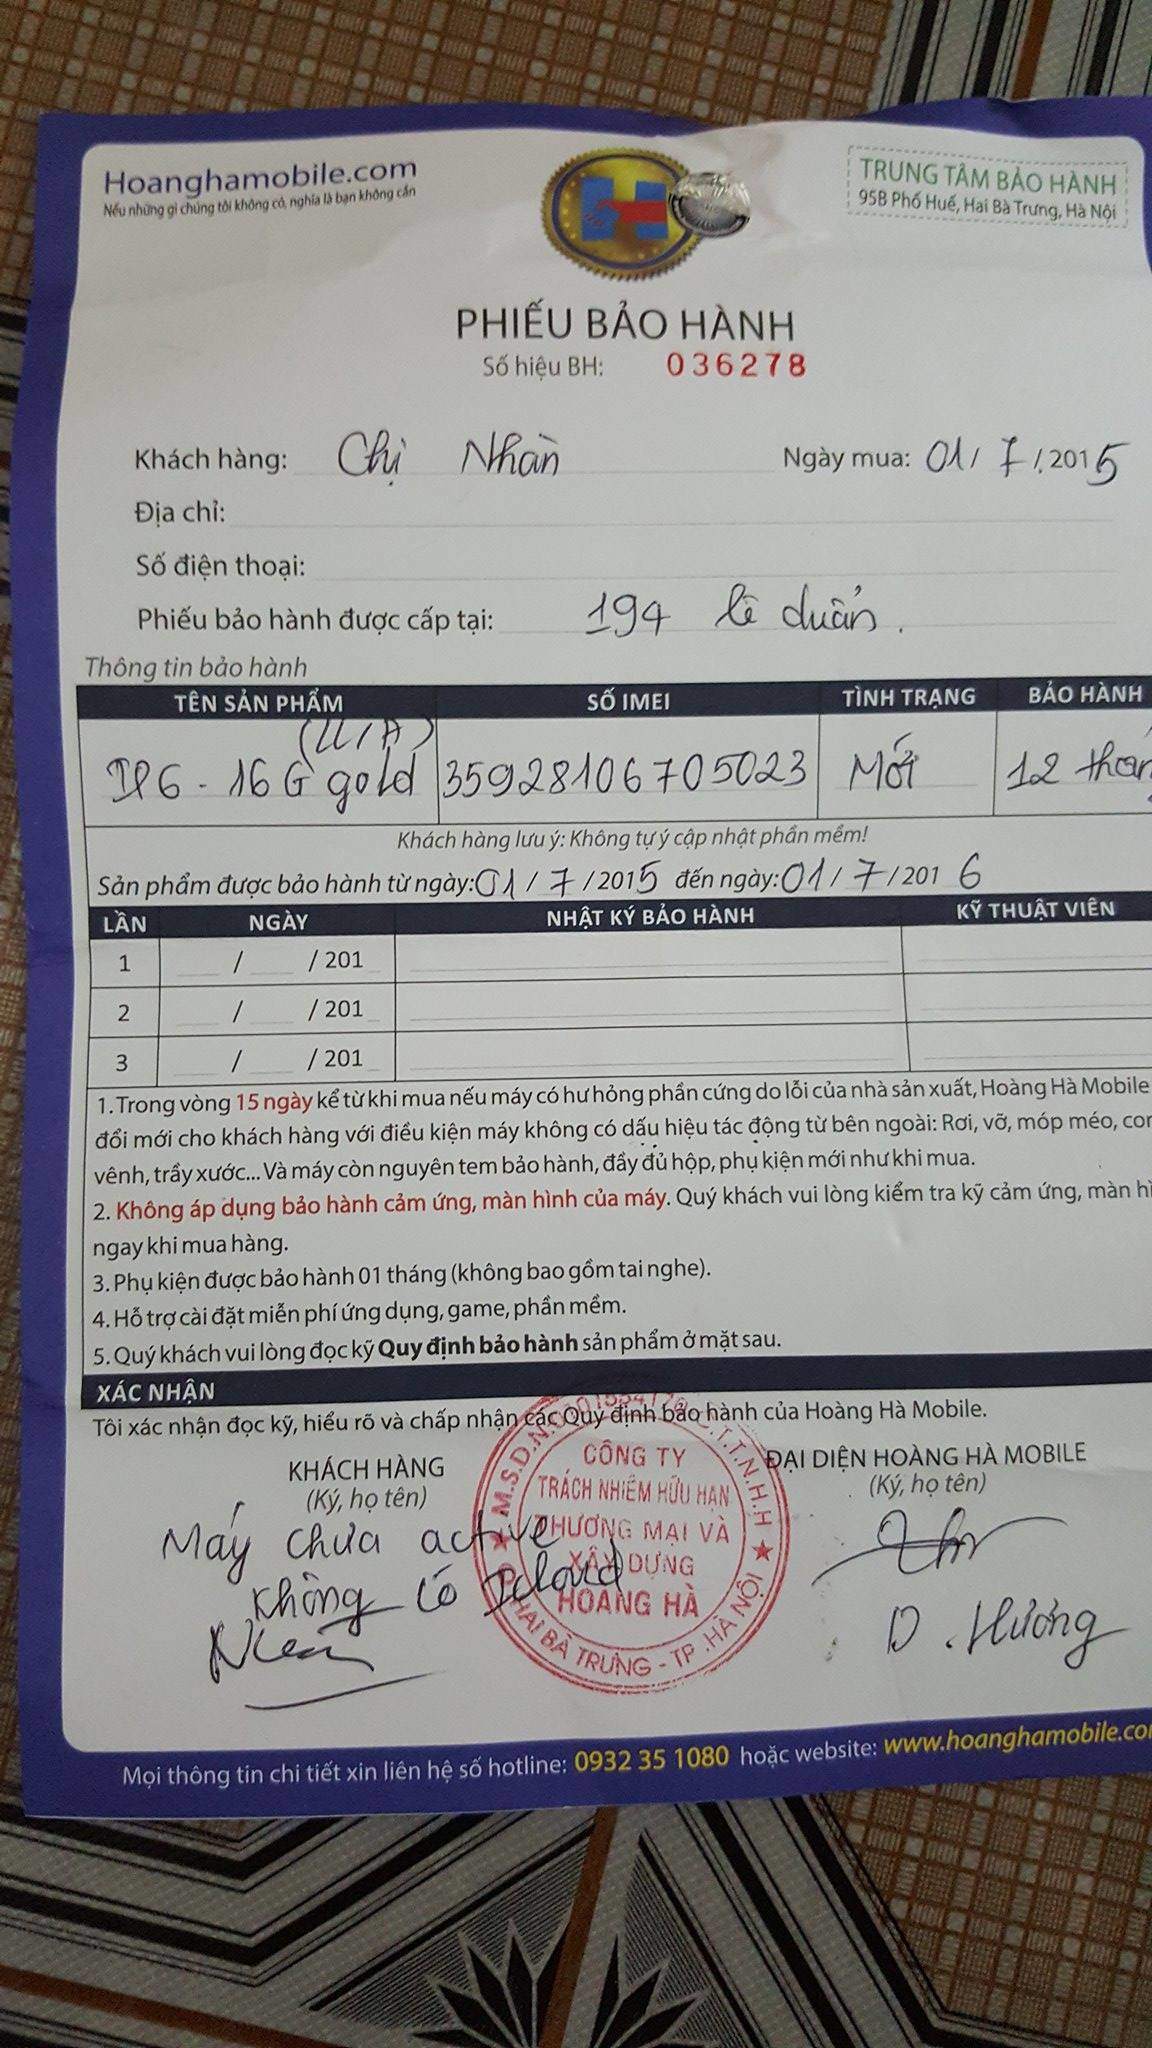 Hoanghamobile.com
Nếu những gì chúng tôi không có, nghĩa là bạn không cần
TRUNG TÂM BẢO HÀNH
95B Phố Huế, Hai Bà Trưng, Hà Nội
PHIẾU BẢO HÀNH
Số hiệu BH: 036278
Khách hàng: Chị Nhàn Ngày mua: 01/7/.2015
Địa chỉ:
Số điện thoại:
Phiếu bảo hành được cấp tại: 194 lê duẩn.
Thông tin bảo hành
TÊN SẢN PHẨM SỐ IMEI TÌNH TRẠNG BẢO HÀNH
(LL/A)
IP6 - 16G gold 35928106705023 Mới 12
Khách hàng lưu ý: Không tự ý cập nhật phần mềm!
Sản phẩm được bảo hành từ ngày: 01/7/2015 đến ngày: 01/7/2016
LẦN NGÀY NHẬT KÝ BẢO HÀNH KỸ THUẬT VIÊN
1 / /201
2 / /201
3 / /201
1. Trong vòng 15 ngày kể từ khi mua nếu máy có hư hỏng phần cứng do lỗi của nhà sản xuất, Hoàng Hà Mobile
đổi mới cho khách hàng với điều kiện máy không có dấu hiệu tác động từ bên ngoài: Rơi, vỡ, móp méo,
vênh, trầy xước... Và máy còn nguyên tem bảo hành, đầy đủ hộp, phụ kiện mới như khi mua.
2. Không áp dụng bảo hành cảm ứng, màn hình của máy. Quý khách vui lòng kiểm tra kỹ cảm ứng, màn
ngay khi mua hàng.
3. Phụ kiện được bảo hành 01 tháng (không bao gồm tai nghe).
4. Hỗ trợ cài đặt miễn phí ứng dụng, game, phần mềm.
5. Quý khách vui lòng đọc kỹ Quy định bảo hành sản phẩm ở mặt sau.
XÁC NHẬN
Tôi xác nhận đọc kỹ, hiểu rõ và chấp nhận các Quy định bảo hành của Hoàng Hà Mobile.
KHÁCH HÀNG
(Ký, họ tên)
ĐẠI DIỆN HOÀNG HÀ MOBILE
(Ký, họ tên)
Máy chưa active
không có Icloud
CÔNG TY
TRÁCH NHIỆM HỮU HẠN
THƯƠNG MẠI VÀ
XÂY DỰNG
HOÀNG HÀ
HAI BÀ TRƯNG - TP. HÀ NỘI
D. Hương
Mọi thông tin chi tiết xin liên hệ số hotline: 0932 35 1080 hoặc website: www.hoanghamobile.co